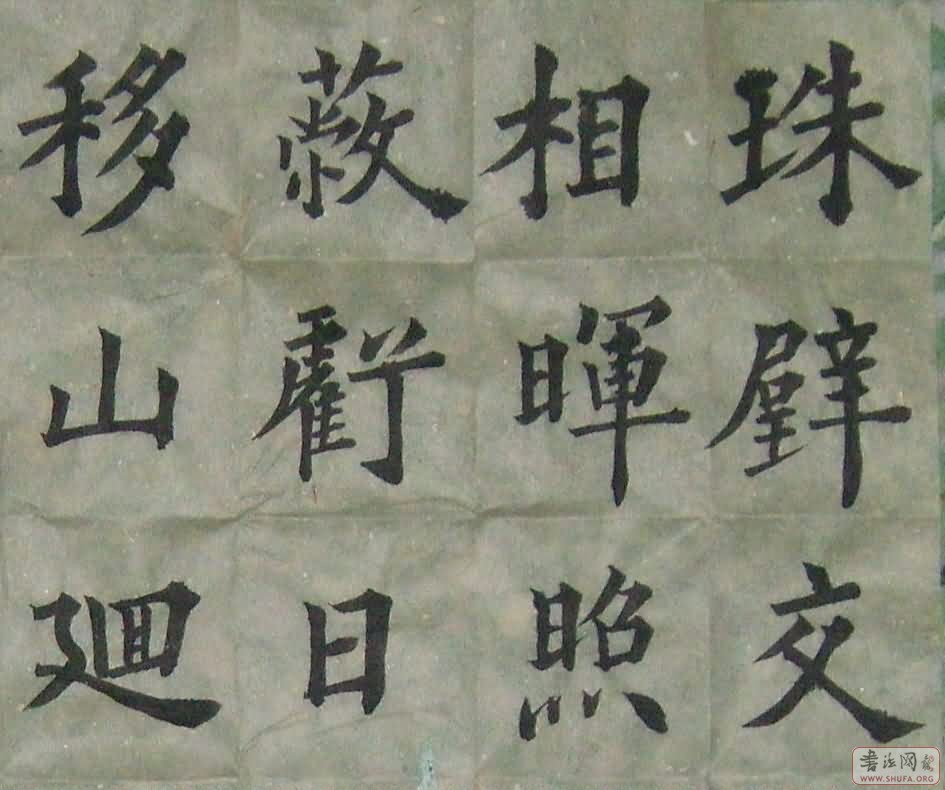 珠璧交
相暉照
蔽虧日
移山廻
书法网
WWW.SHUFA.ORG